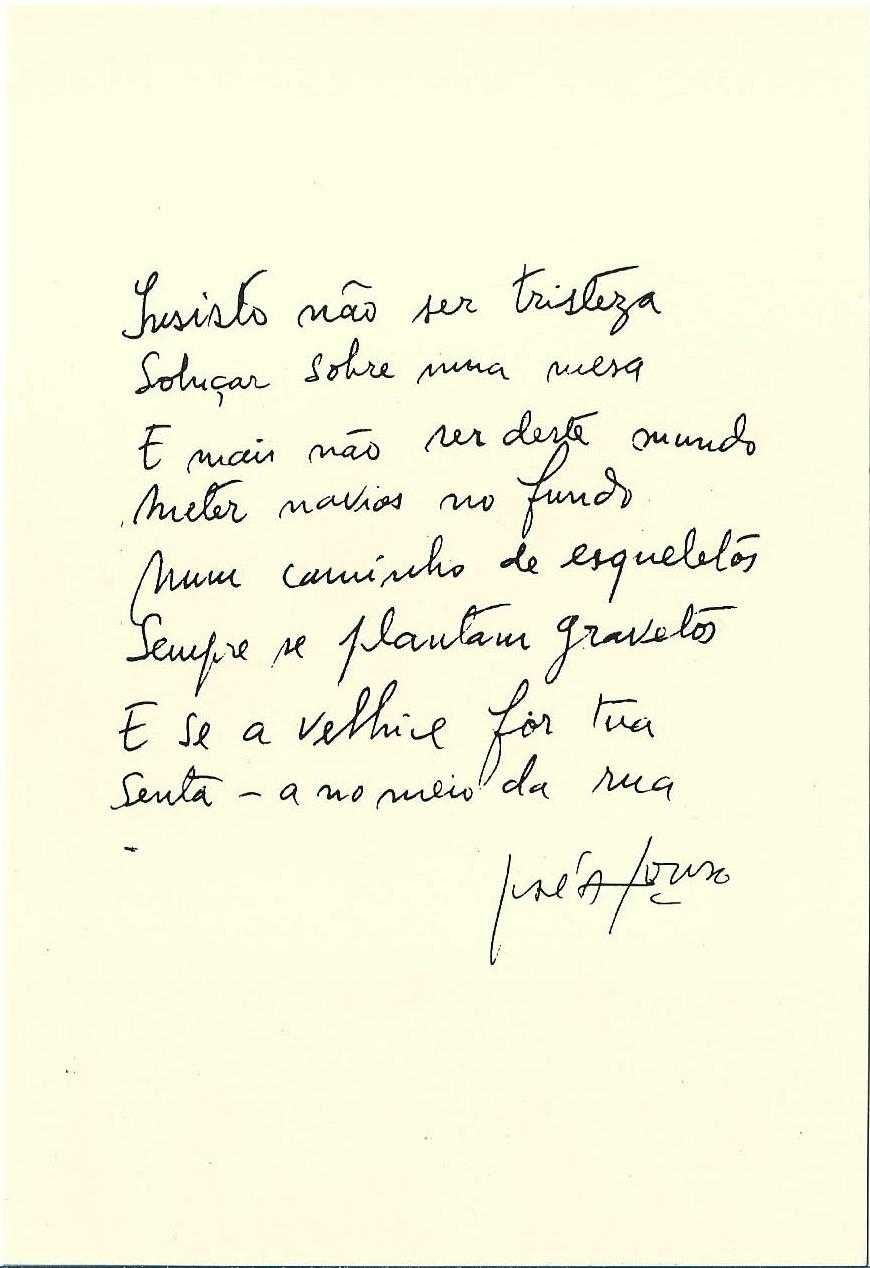 Insisto não ser tristeza
Soluçar sobre uma mesa
E mais não ser deste mundo
Meter navios no fundo
Num caminho de esqueletos
Sempre se plantam gravetos
E se a velhice fôr tua
Senta-a no meio da rua
-
José Afonso